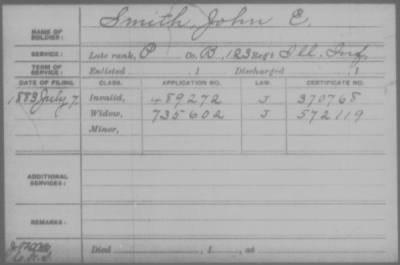 NAME OF SOLDIER: Smith, John E.
SERVICE: Late rank, P Co. B, 123 Reg't Ill. Inf.
TERM OF SERVICE: Enlisted , 1 Discharged , 1
DATE OF FILING. CLASS. APPLICATION NO. LAW. CERTIFICATE NO.
1883 July 7. Invalid, 489272 J 370768
Widow, 735602 J 572119
Minor,
ADDITIONAL SERVICES:
REMARKS:
Died , 1 , at